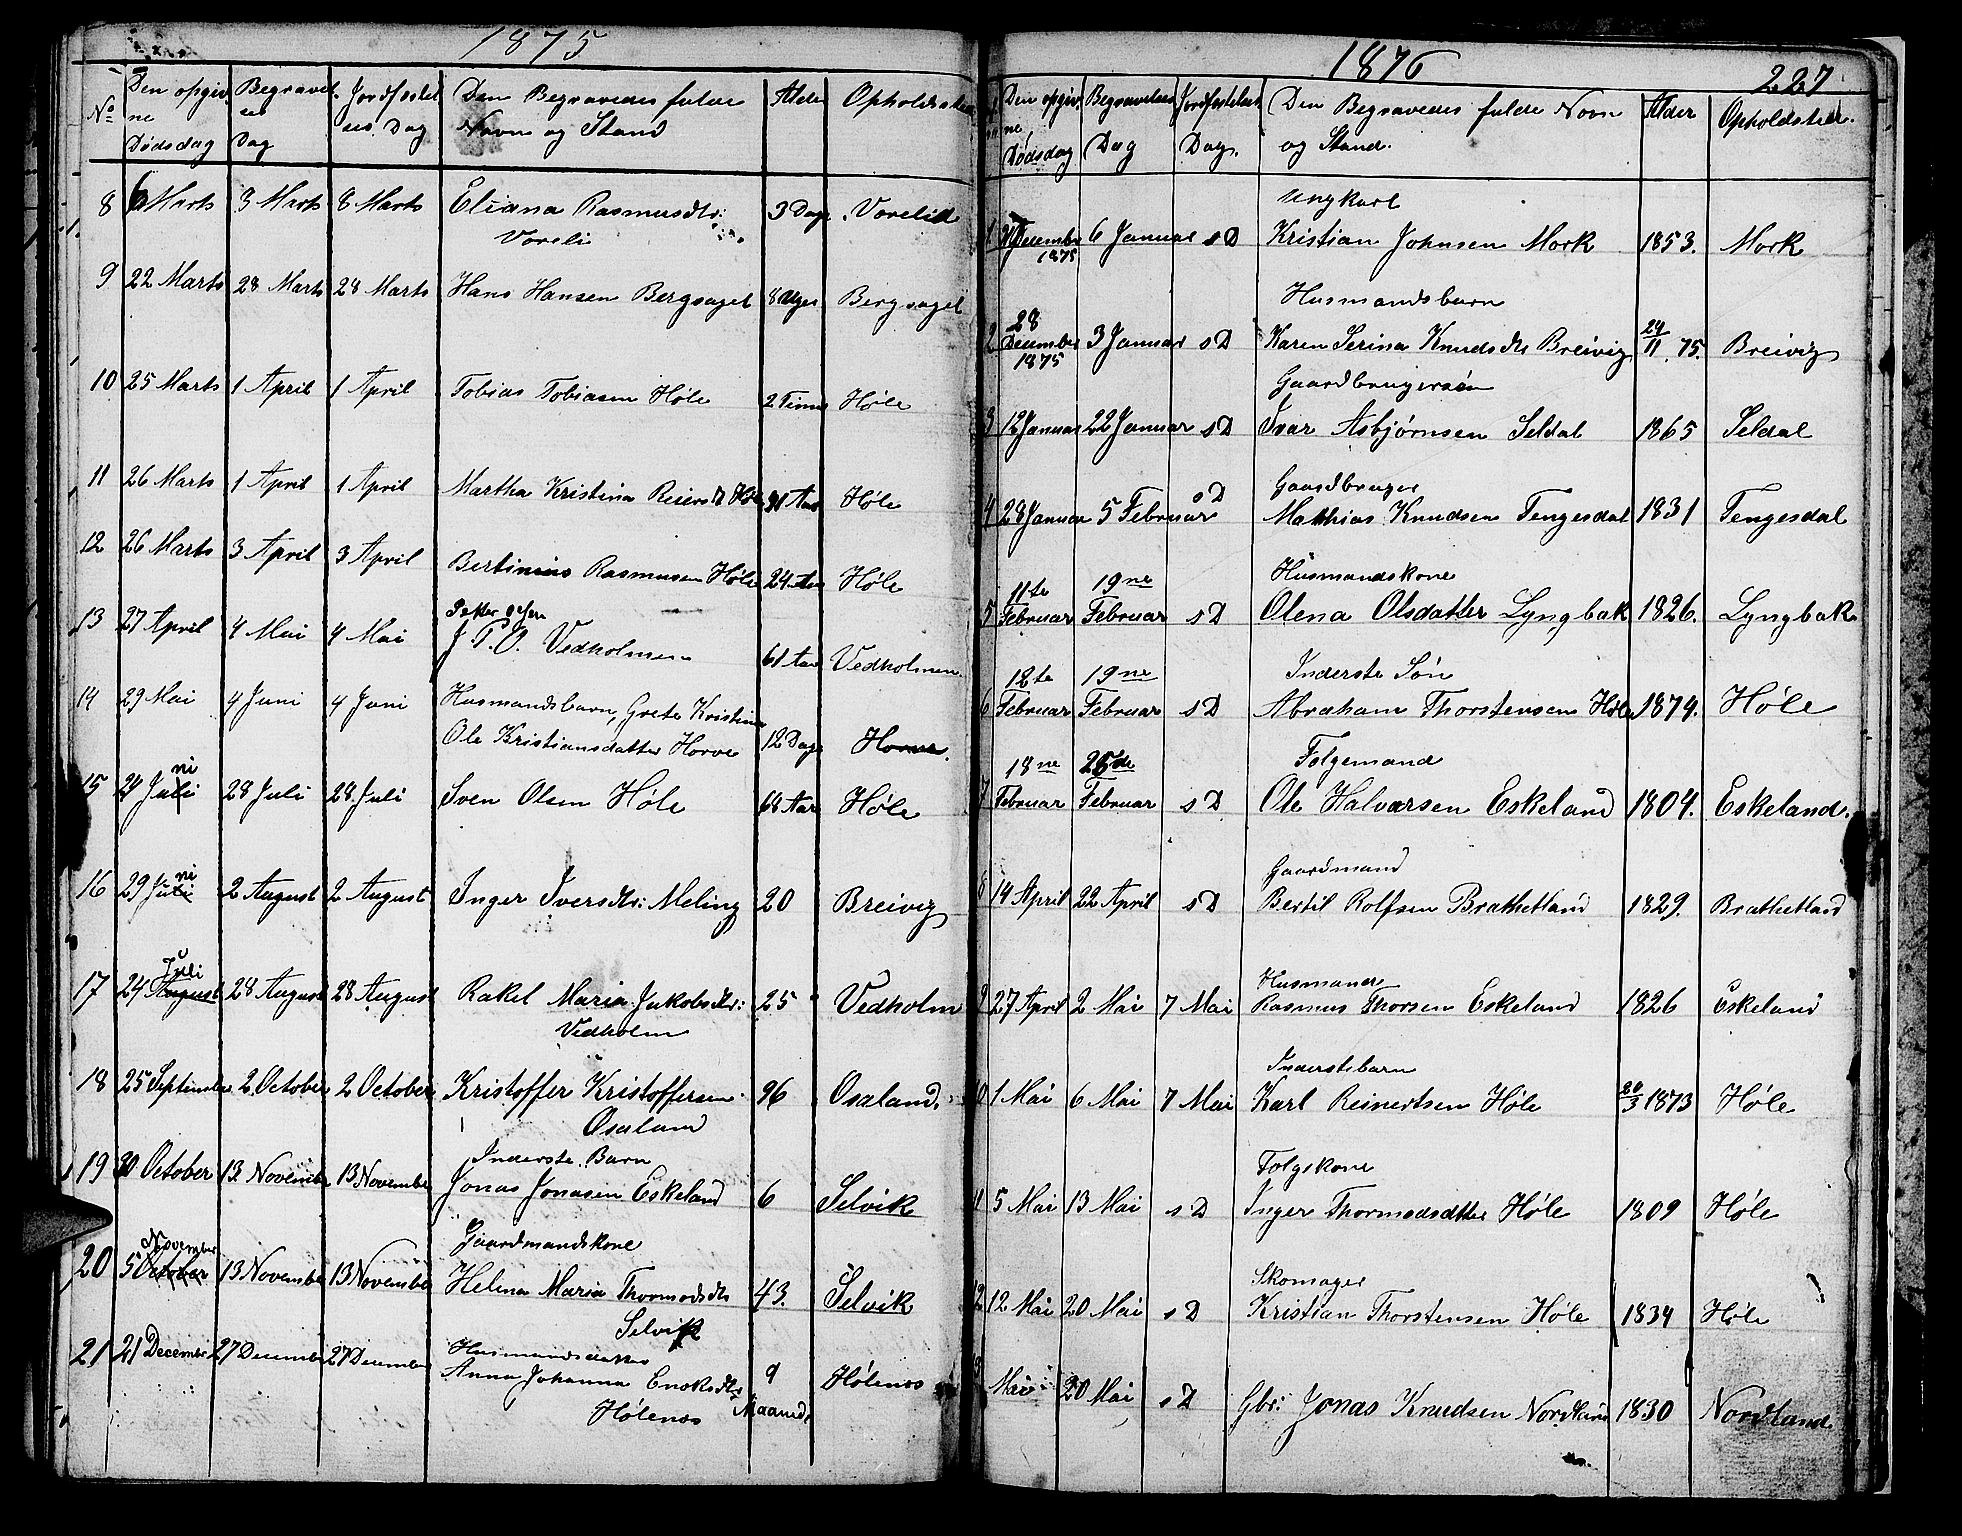 1875
No Den opgivne Dødsdag Begravelses Dag Jordfæstelses Dag Den Begravedes fulde Navn og Stand Alder Opholdsted
8 6 Marts 3 Marts 8 Marts Eliana Rasmusdtr: 3 Dage Vorelid
Voreli
9 22 Marts 28 Marts 28 Marts Hans Hansen Bergsaget Bergsaget
10 25 Marts 1 April 1 April Tobias Tobiasen Høle 2 Timer Høle
11 26 Marts 1 April 1 April Martha Kristina Høle Aar Høle
12 26 Marts 3 April 3 April Bertinius Rasmusen Høle 24 Aar Høle
Petter
13 27 April 4 Mai 4 Mai J. P. O. Vedholmen 61 Aar Vedholmen
14 29 Mai 4 Juni 4 Juni Husmandsbarn, Grete Kristine
Ole Kristiansdatter Horve 12 Dage
ni
15 24 Juli 28 Juli 28 Juli Sven Olsen Høle 68 Aar Høle
ni
16 29 Juli 2 August 2 August Inger Iversdtr: Meling 20 Breivig
Juli
17 24 August 28 August 28 August Rakel Maria Jakobsdtr: 25 Vedholm
Vedholm
18 25 September 2 October 2 October Kristoffer Kristoffersen 96 Osaland.
Osaland
Inderste Barn
19 30 October 13 November 13 November Jonas Jonasen Eskeland 6 Selvik
Gaardmandskone
November
20 5 October 13 November 13 November Helena Maria Thormodsdtr 43. Selvik
Selvik
21 21 December 27 December 27 December Anna Johanna Enoksdtr 9 Maaned. Hølenes
Hølenes
1876
227
Den opgivne Dødsdag Begravelses Dag Jordfæstelses Dag. Den Begravedes fulde Navn og Stand. Alder Opholdsted.
Ungkarl
1 31 December 1875 6 Januar s D Kristian Johnsen Mork 1853. Mork
Husmandsbarn
2 28 December 1875 3 Januar s D Karen Serina Knudsdtr Breivig 24/11 75. Breivig
Gaardbrugersøn
3 12 Januar 22 Januar s D Ivar Asbjørnsen Seldal 1865 Seldal
Gaardbruger
4 28 Januar 5 Februar s D Mathias Knudsen Tengesdal 1831 Tengesdal
Husmandskone
5 11te Februar 19ne Februar s D Olena Olsdatter Lyngbak 1826. Lyngbak
Inderste Søn
6 12te Februar 19ne Februar s D Abraham Thorstensen Høle 1874. Høle
Folgemand
7 18ne Februar 25de Februar s D Ole Halvarsen Eskeland 1804. Eskeland.
Gaardmand
8 14 April 22 April s D Bertil Rolfsen Brathetland 1829. Brathetland
Husmand
9 27 April 2 Mai 7 Mai Rasmus Thorsen Eskeland 1826 Eskeland
Inderstebarn
10 1 Mai 6 Mai 7 Mai Karl Reinertsen Høle 20/3 1873 Høle
Folgekone
11 5 Mai 13 Mai s D Inger Thormodsdatter Høle 1809 Høle
Skomager
12 12 Mai 20 Mai s D Kristian Thorstensen Høle 1834 Høle
Mai 20 Mai s D Gbr: Jonas Knudsen Nordland 1830 Nordland